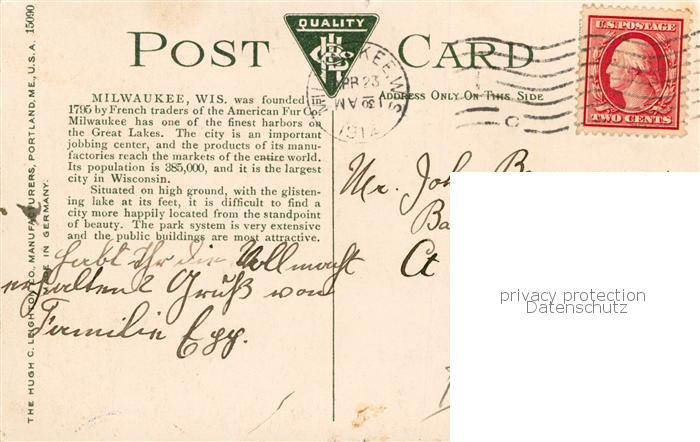 QUALITY
POST CARD
U.S. POSTAGE
TWO CENTS
ADDRESS ONLY ON THIS SIDE
MILWAUKEE, WIS. was founded in
1795 by French traders of the American Fur Co.
Milwaukee has one of the finest harbors on
the Great Lakes. The city is an important
jobbing center, and the products of its manu-
factories reach the markets of the entire world.
Its population is 385,000, and it is the largest
city in Wisconsin.
Situated on high ground, with the glisten-
ing lake at its feet, it is difficult to find a
city more happily located from the standpoint
of beauty. The park system is very extensive
and the public buildings are most attractive.
habt Ihr die Vollmacht
erhalten? Gruß von
Familie Egg.
Mr. John
Ba
Ct
privacy protection
Datenschutz
THE HUGH C. LEIGHTON CO. MANUFACTURERS, PORTLAND, ME., U.S.A. 15090
MADE IN GERMANY.